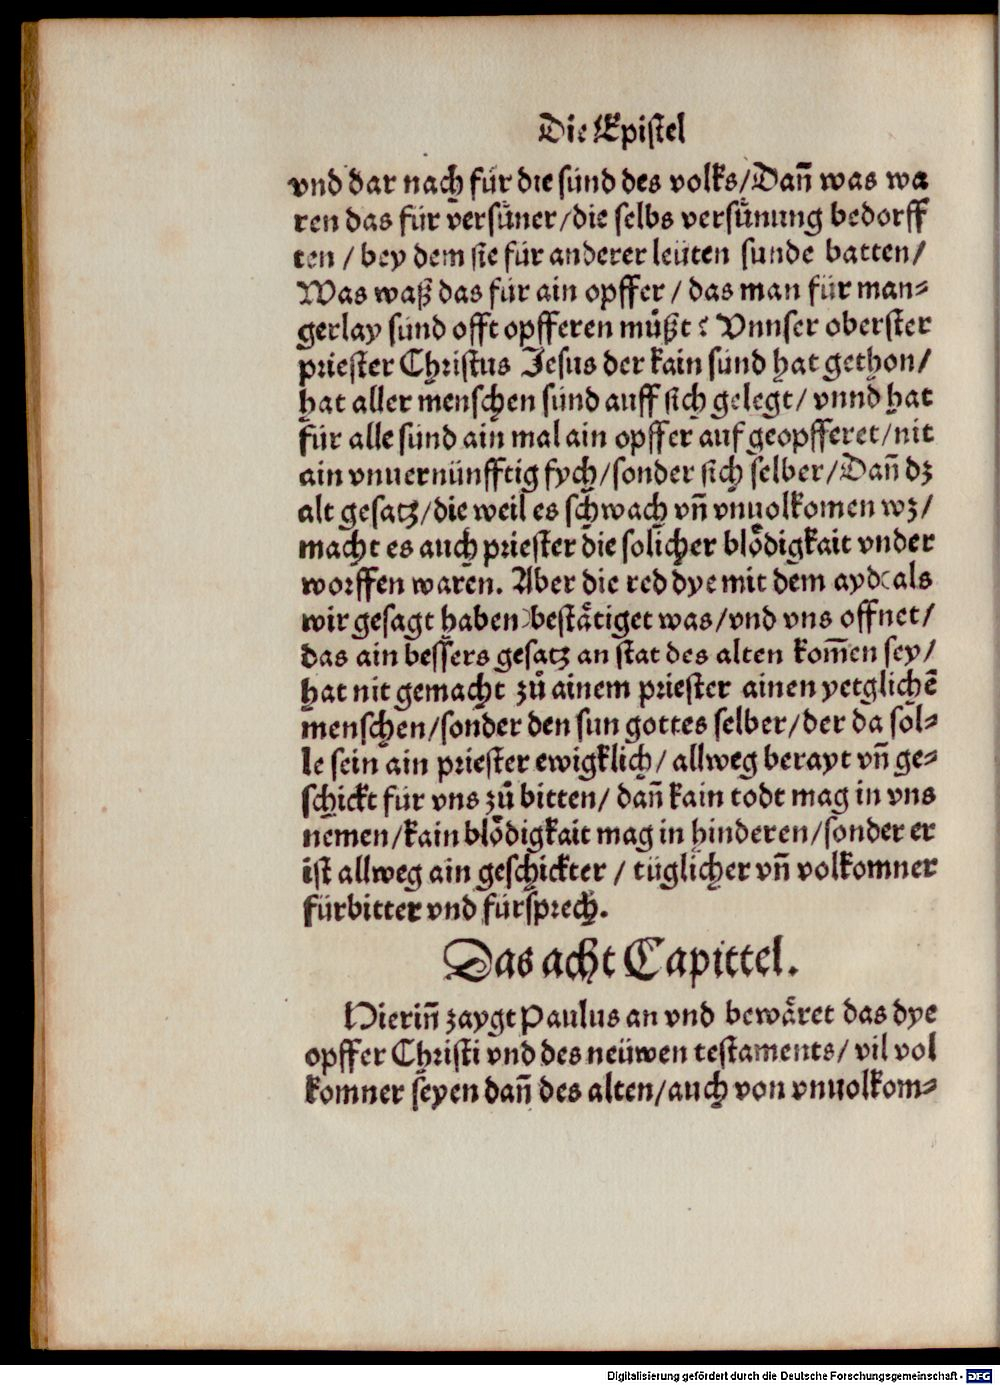 Die Epistel
vnd dar nach für die sünd des volks/Dañ was wa
ren das für versüͤner/die selbs versüͤnung bedorff
ten / bey dem sie für anderer leüten sunde batten/
Was waß das für ain opffer / das man für man⸗
gerlay sünd offt opfferen müͤßt? Vnnser oberster
priester Christus Jesus der kain sünd hat gethon/
hat aller menschen sünd auff sich gelegt/ vnnd hat
für alle sünd ain mal ain opffer auf geopfferet/nit
ain vnuernünfftig fych/sonder sich selber/Dañ dz
alt gesatz/die weil es schwach vñ vnuolkomen wz/
macht es auch priester die solicher blödigkait vnder
worffen waren. Aber die red dye mit dem ayd(als
wir gesagt haben)bestätiget was/vnd vns offnet/
das ain bessers gesatz an stat des alten kom̃en sey/
hat nit gemacht zů ainem priester ainen yetglichẽ
menschen/sonder den sun gottes selber/der da söl⸗
le sein ain priester ewigklich/ allweg berayt vñ ge⸗
schickt für vns zů bitten/ dañ kain todt mag in vns
nemen/kain blödigkait mag in hinderen/sonder er
ist allweg ain geschickter / tüglicher vñ volkomner
fürbitter vnd fürsprech.
Das acht Capittel.
Hieriñ zaygt Paulus an vnd bewäret das dye
opffer Christi vnd des neüwen testaments/ vil vol
komner seyen dañ des alten/auch von vnuolkom⸗
Digitalisierung gefördert durch die Deutsche Forschungsgemeinschaft - DFG